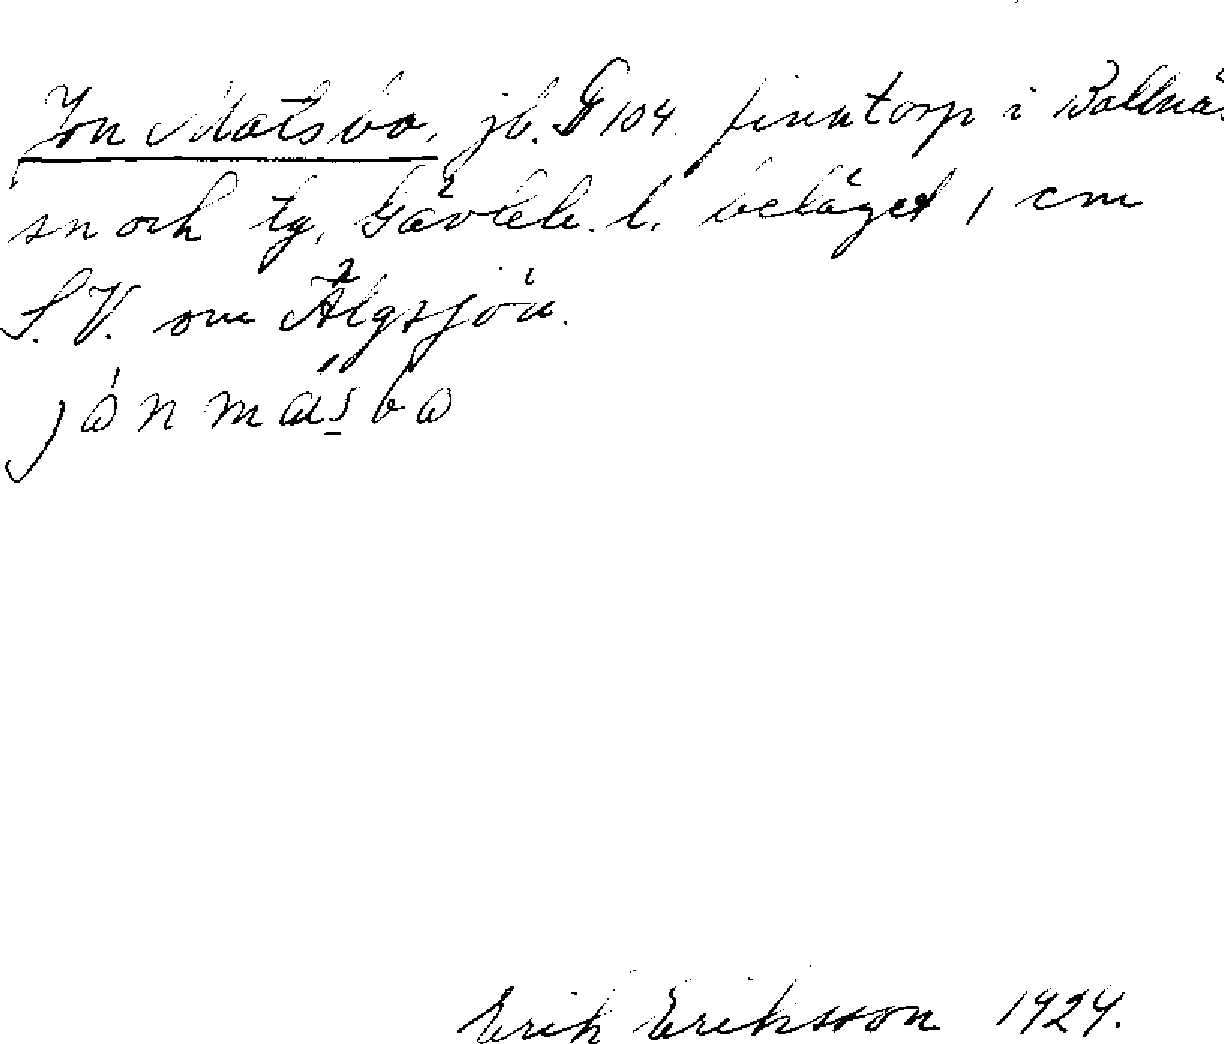 Jon Matsbo, jb. G 104. finntorp i Bollnäs
sn och tg, Gävleb. l. beläget 1 cm
S.V. om Älgsjön.
Erik Eriksson 1924.